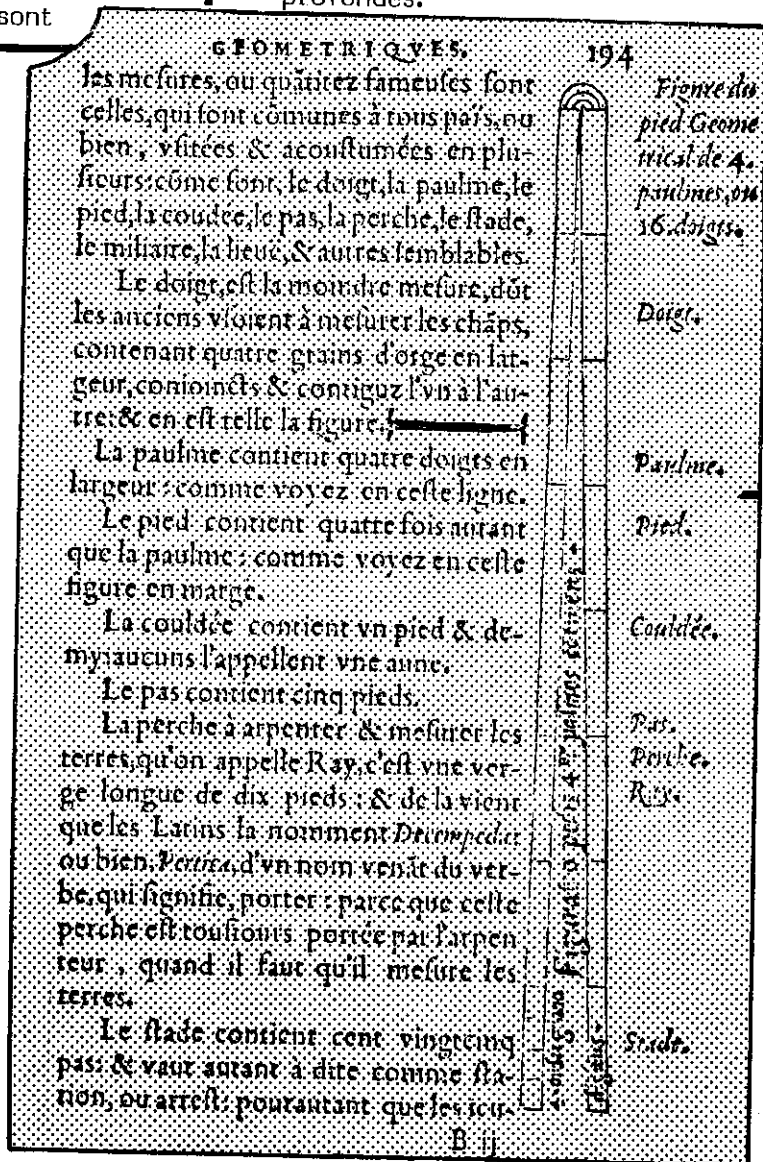 profondes.
sont
GEOMETRIQVES. 194
les mesures, ou quãtitez fameuses sont
celles, qui sont cõmunes à tous païs, ou
bien, vsitées & acoustumées en plu-
sieurs: cõme sont, le doigt, la paulme, le
pied, la coudée, le pas, la perche, le stade,
le miliaire, la lieuë, & autres semblables.
Le doigt, est la moindre mesure, dõt
les anciens vsoient à mesurer les chãps,
contenant quatre grains d'orge en lar-
geur, conioincts & contiguz l'vn à l'au-
tre: & en est telle la figure.
La paulme contient quatre doigts en
largeur: comme voyez en ceste ligne.
Le pied contient quatre fois autant
que la paulme: comme voyez en ceste
figure en marge.
La couldée contient vn pied & de-
my: aucuns l'appellent vne aune.
Le pas contient cinq pieds.
La perche à arpenter & mesurer les
terres, qu'on appelle Ray, c'est vne ver-
ge longue de dix pieds: & de la vient
que les Latins la nomment Decempedat
ou bien, Pertica, d'vn nom venãt du ver-
be, qui signifie, porter: parce que ceste
perche est tousiours portée par l'arpen
teur, quand il faut qu'il mesure les
terres.
Le stade contient cent vingtcinq
pas: & vaut autant à dire comme sta-
tion, ou arrest: pourautant que les icu-
B ij
Figure du
pied Geome
trical de 4.
paulmes, ou
16. doigts.
Doigt.
Paulme.
Pied.
Couldée.
Pas.
Perche.
Ray.
Stade.